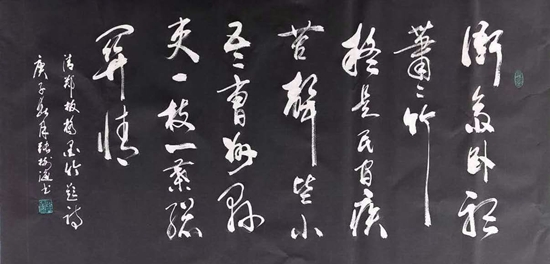 衙齋卧聽
蕭〻竹
疑是民間疾
苦聲些小
吾曹州縣
吏一枝一葉總
關情
清鄭板橋墨竹題詩
庚子 月 書